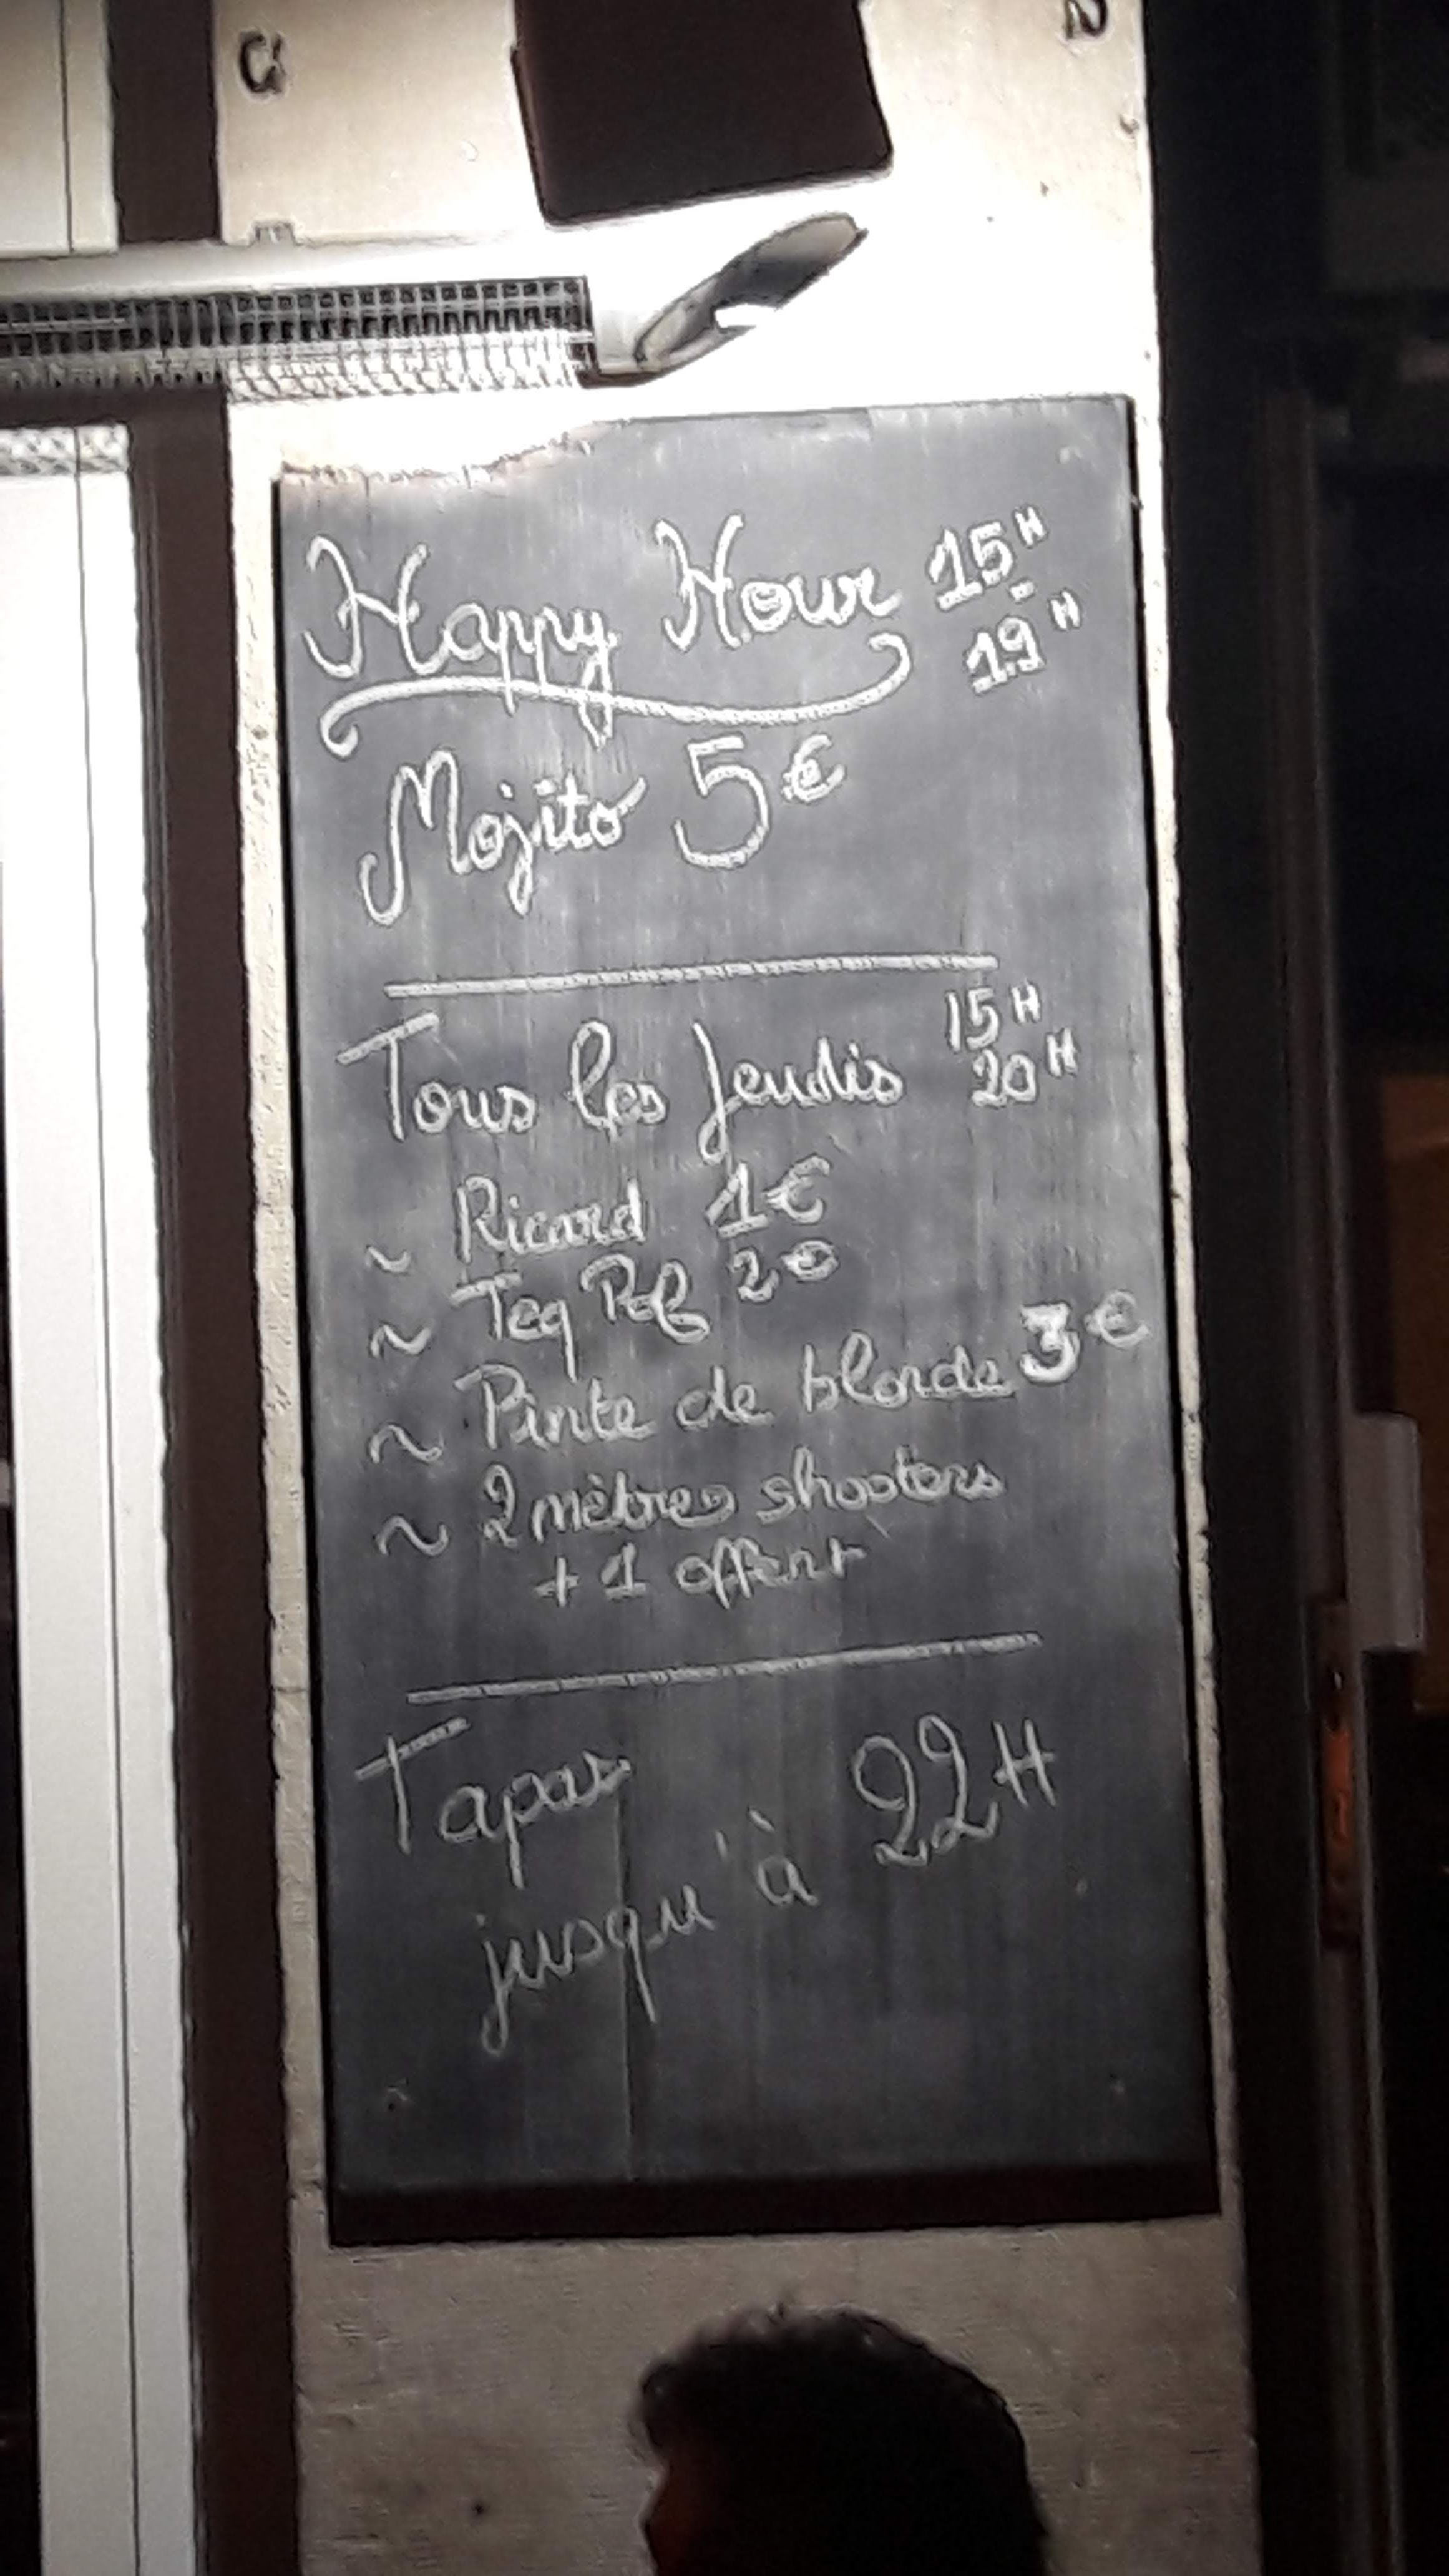 Happy Hour 15H
- 19H
Mojito 5€
Tous les Jeudis 15H
20H
~ Ricard 1€
~ Teq Paf 2€
~ Pinte de blonde 3€
~ 2 mètres shooters
+ 1 offert
Tapas
jusqu'à 22H